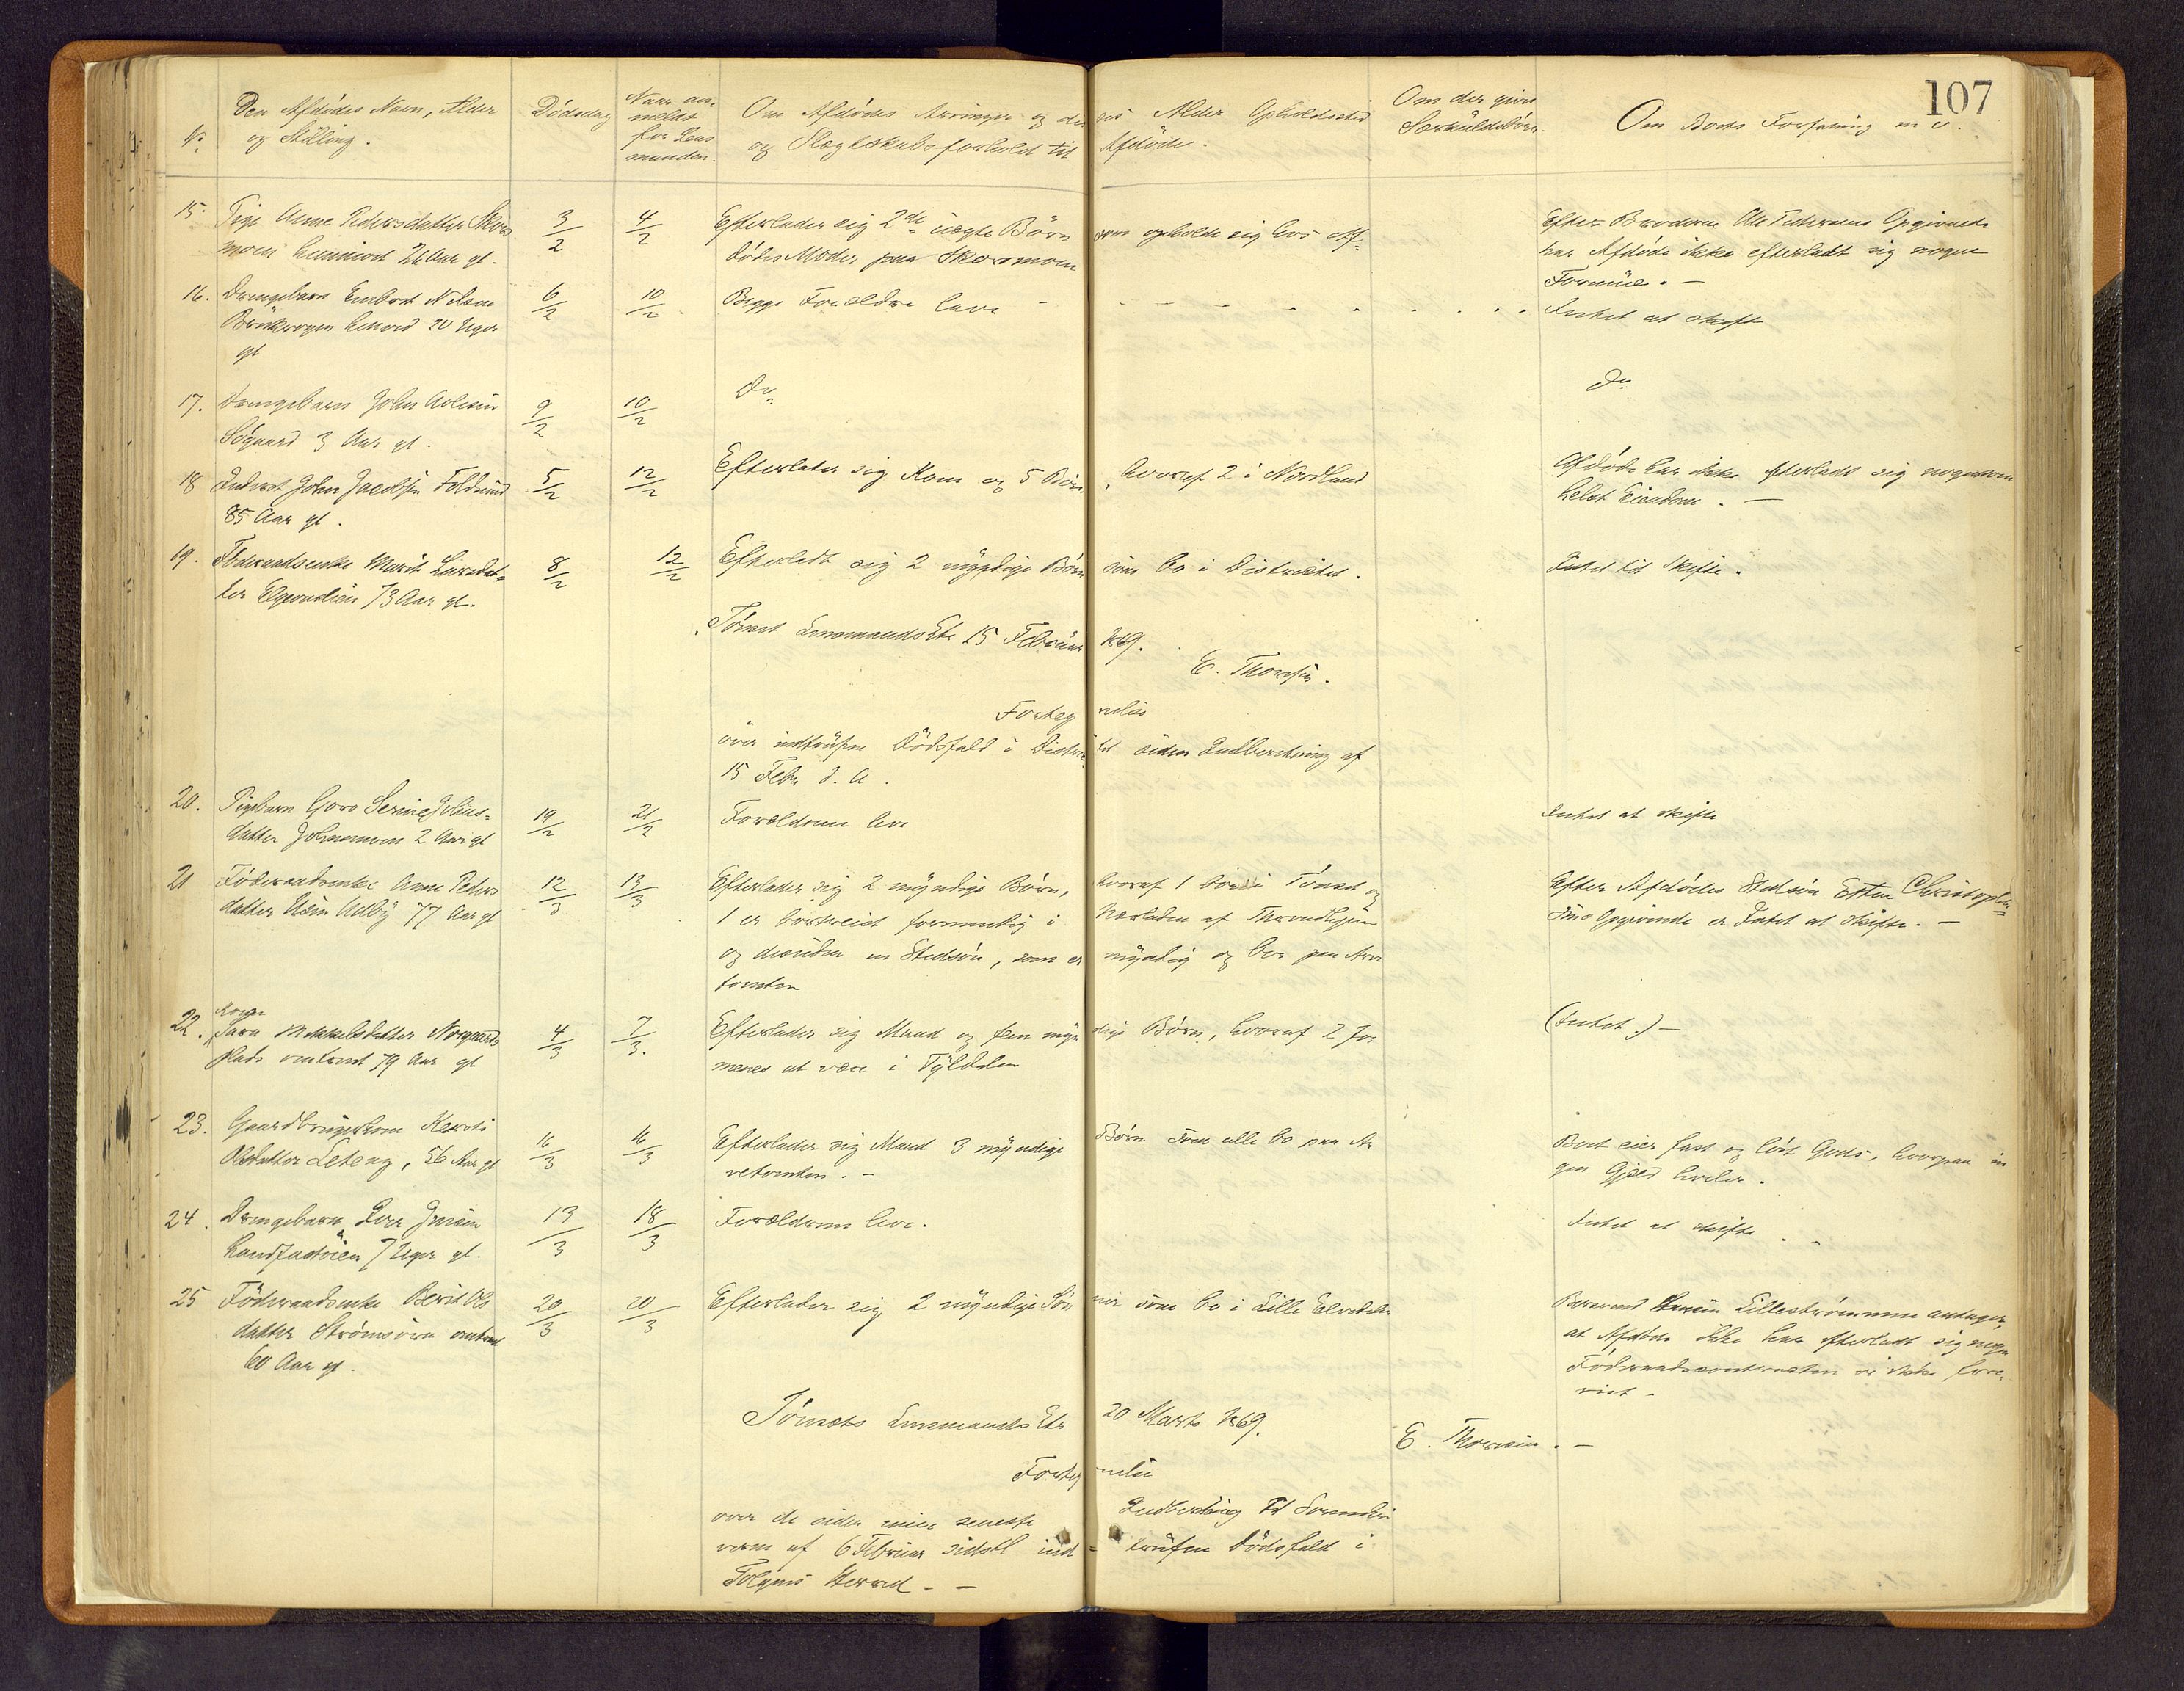 107
No Den Afdødes Navn, Alder og Stilling. Dødsdag Naar anmeldt for Lensmanden. Om Afdødes Arvinger og deres Alder Opholdssted og Slægtskabsforhold til Afdøde. Om der gives Særkuldsbørn. Om Boets Forfatning m. v.
15. Pige Anne Pedersdatter Skors 3/2 4/2 Efterlader sig 2de uægte Børn som opholde sig hos Af- Efter Broderen Ole Pedersens Opgivende
moen 26 Aar gl. dødes Moder paa Skorsmoen har Afdøde ikke efterladt sig nogen
Formue. -
16. Drengebarn Embret Nilsen 6/2 10/2 Begge Forældre leve - Intet at skifte
20 Uger
gl
17. Drengebarn John 9/2 10/2 Do Do
Søgaard 3 Aar gl.
18 Inderst John Jacobsen Foldsund 5/2 12/2 Efterlader sig Kone og 5 Børn, hvoraf 2 i Nordland Afdøde har ikke efterladt sig nogensom
85 Aar gl. helst Eiendom. -
19. Føderaadsenke Marit Larsdat- 8/2 12/2 Efterladt sig 2 myndige Børn som bo i Districtet. Intet til Skifte.
ter 73 Aar gl.
Tønset Lensmands Etr 15 Februar 1869.
E. Thoresen.
Fortegnelse
over indtrufne Dødsfald i Districtet siden Indberetning af
15 Febr d. A.
20. Pigebarn Goro Serine 19/2 21/2 Forældrene leve Intet at skifte
datter Johnsmoen 2 Aar gl
21 Føderaadsenke Anne Peders 12/3 13/3 Efterlader sig 2 myndige Børn, hvoraf 1 bor i Tønset og Efter Afdødes Stedsøn Esten Christoph-
datter Auby 77 Aar gl 1 er bortreist formentlig i Nærheden af Throndhjem sens Opgivende er Intet at skifte. -
og desuden en Stedsøn, som er myndig og bor paa Arve
tomten
22. Kone Sara Mikkelsdatter Norgaards 4/3 7/3. Efterlader sig Mand og fem myndige Børn, hvoraf 2 for (Intet.) -
plads omtrent 79 Aar gl menes at være i Tyldalen
23. Gaardbrugerkone Kersti 16/3 16/3 Efterlader sig Mand 3 myndige Børn som alle bo paa Ar Boet eier fast og løst Gods, hvorpaa in
Olsdatter Leteng, 56 Aar gl vetomten. - gen Gjæld hviler.
24. Drengebarn Peer Jensen 13/3 18/3 Forældrene leve. Intet at skifte. -
7 Uger gl.
25 Føderaadsenke Berit Ols 20/3 20/3 Efterlader sig 2 myndige Sønner som bo i Lille Elvedalen Lillestrømmen antager,
datter Strømsøren omtrent at Afdøde ikke har efterladt sig noget
60 Aar gl. Føderaadscontracten er ikke fore-
vist -
Tønsets Lensmands Etr 20 Marts 1869.
E. Thoresen. -
Fortegnelse
over de siden min seneste Indberetning til Sorenskri
veren af 6 Februar sidstl ind- trufne Dødsfald i
Tolgens Herred. -